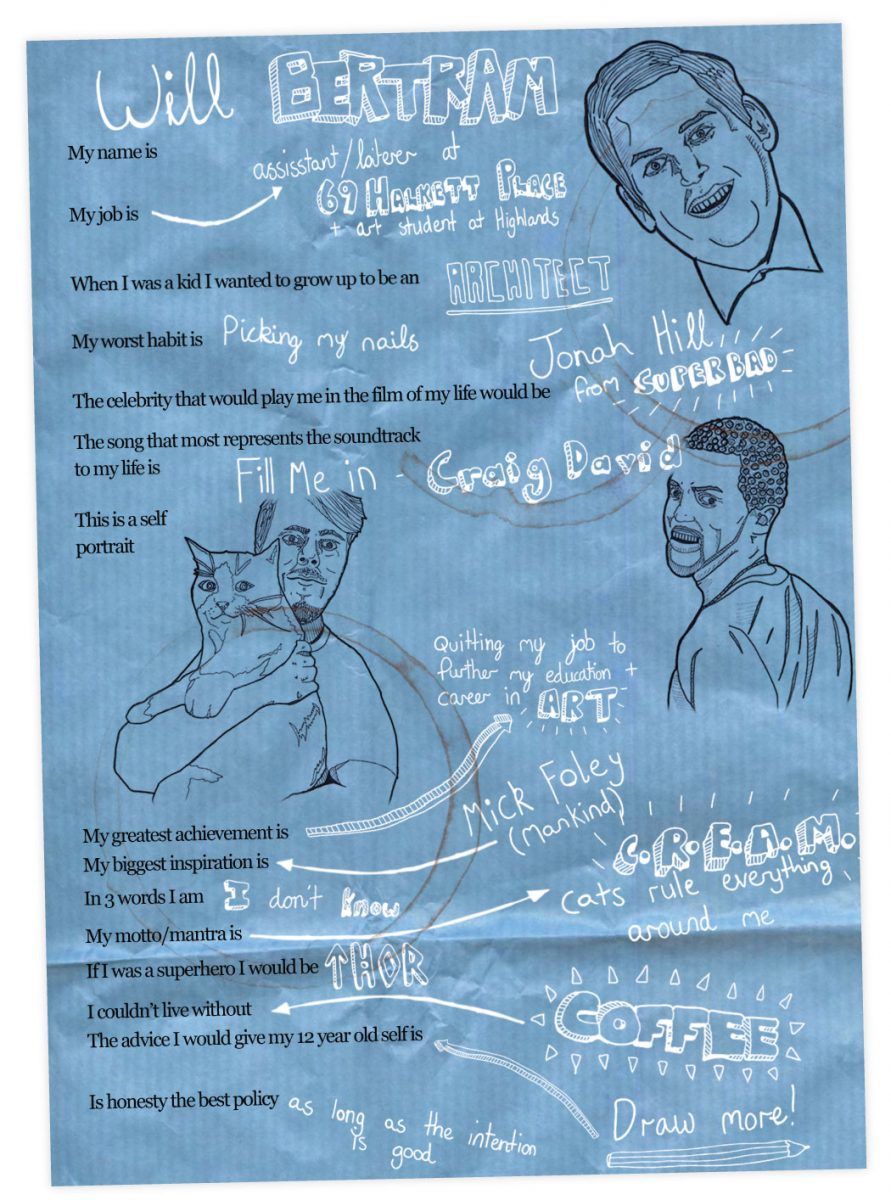 Will BERTRAM
My name is
My job is
assisstant/laterer at
69 HALKETT PLACE
+ art student at Highlands
When I was a kid I wanted to grow up to be an ARCHITECT
My worst habit is Picking my nails
The celebrity that would play me in the film of my life would be
Jonah Hill
from SUPERBAD
The song that most represents the soundtrack
to my life is
Fill Me in - Craig David
This is a self
portrait
Quitting my job to
further my education +
career in ART
My greatest achievement is
My biggest inspiration is
Mick Foley
(Mankind)
In 3 words I am I don't know
My motto/mantra is
C.R.E.A.M.
cats rule everything
around me
If I was a superhero I would be THOR
I couldn't live without
COFFEE
The advice I would give my 12 year old self is
Draw more!
Is honesty the best policy as long as the intention
is good